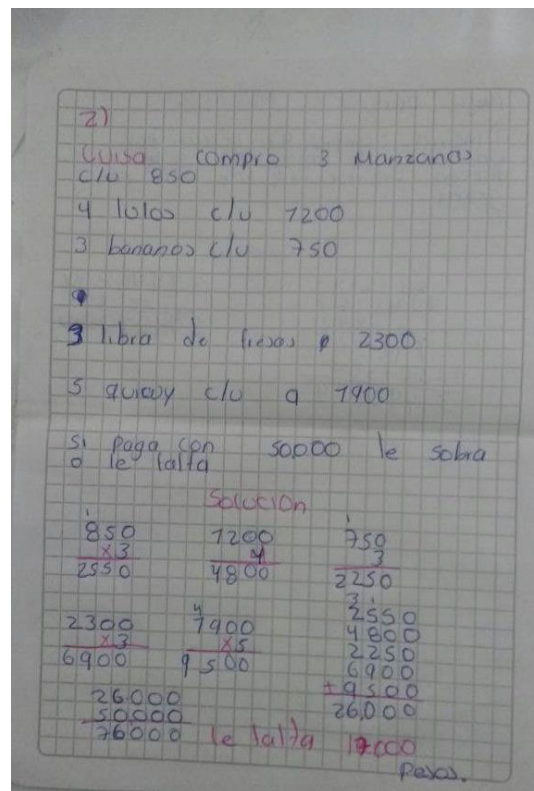 2)
Luisa compro 3 Manzanas
c/u 850
4 lulos c/u 1200
3 bananos c/u 750
3 libra de fresas 2300
5 quiwy c/u a 1900
si paga con 50000 le sobra
o le falta
Solucion
850 1200 750
x3 4 3
2550 4800 2250
2300 1900 2550
x3 x5 4800
6900 9500 2250
6900
+9500
26,000
26,000
50000
76000 le falta
pesos.